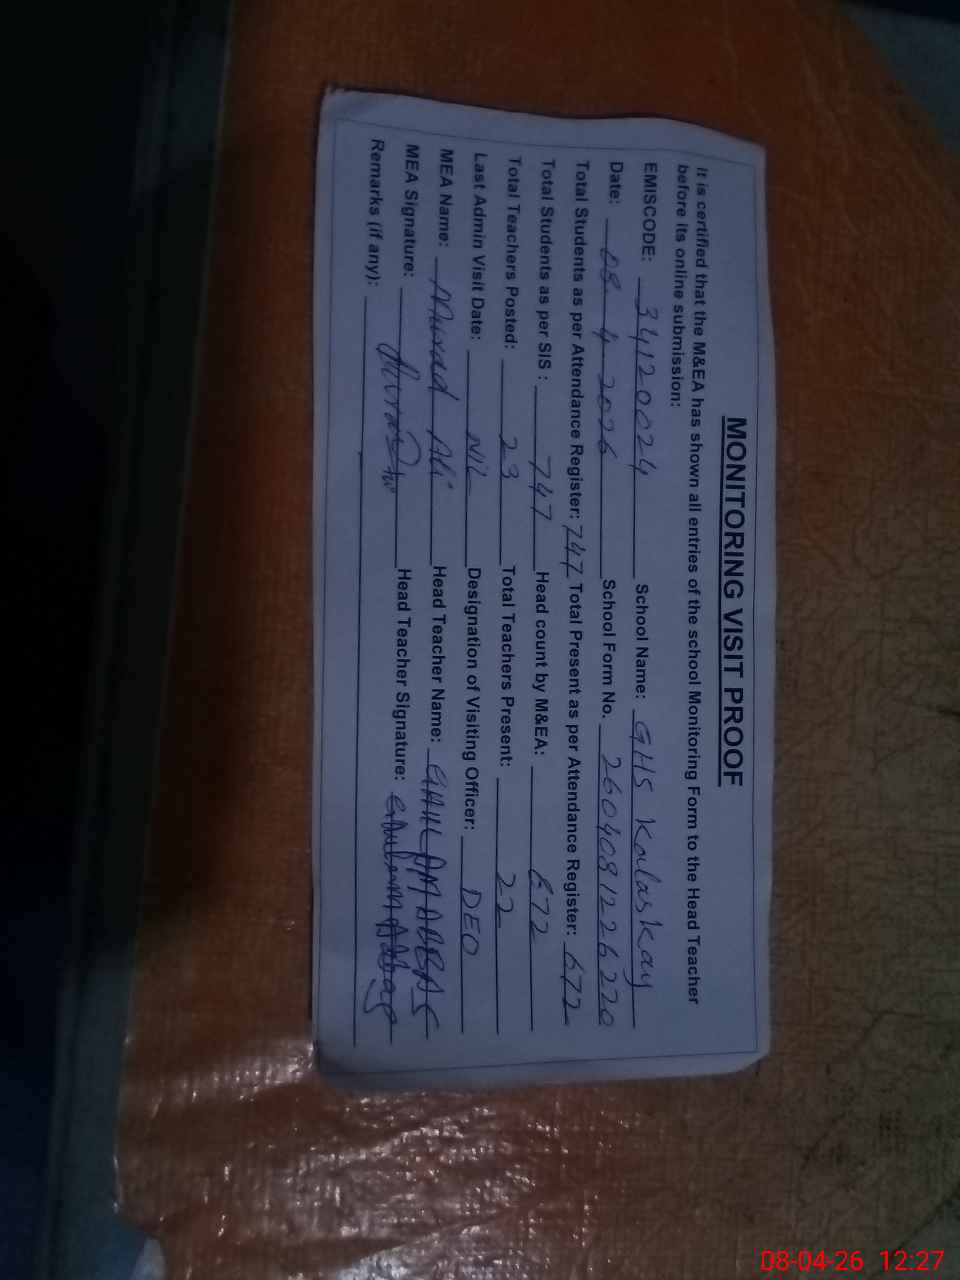 MONITORING VISIT PROOF
It is certified that the M&EA has shown all entries of the school Monitoring Form to the Head Teacher
before its online submission:
EMISCODE: 34120024 School Name: GHS Kalaskay
Date: 08-4-2026 School Form No. 2604081226220
Total Students as per Attendance Register: 747 Total Present as per Attendance Register: 672
Total Students as per SIS : 747 Head count by M&EA: 672
Total Teachers Posted: 23 Total Teachers Present: 22
Last Admin Visit Date: NIL Designation of Visiting Officer: DEO
MEA Name: Murad Ali Head Teacher Name: ABBAS
MEA Signature: Head Teacher Signature:
Remarks (if any):
08-04-26 12:27